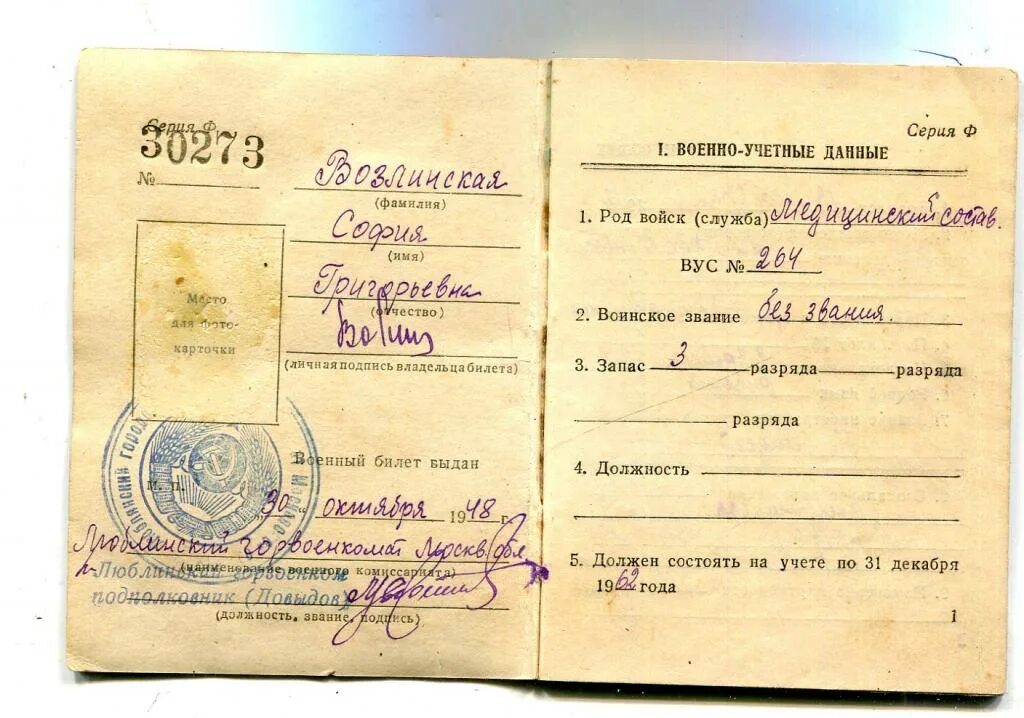 Серия Ф
30273
№
Возлинская
(фамилия)
София
(имя)
Григорьевна
(отчество)
(личная подпись владельца билета)
Место
для фото-
карточки
Военный билет выдан
М. П.
„30“ октября 1948 г.
Люблинский горвоенкомат Москв. обл.
(наименование военного комиссариата)
Люблинский горвоенком
подполковник (Довыдов)
(должность, звание, подпись)
Серия Ф
I. ВОЕННО-УЧЕТНЫЕ ДАННЫЕ
1. Род войск (служба) Медицинский состав.
ВУС № 264
2. Воинское звание без звания.
3. Запас 3 разряда разряда
разряда
4. Должность
5. Должен состоять на учете по 31 декабря
1962 года
1